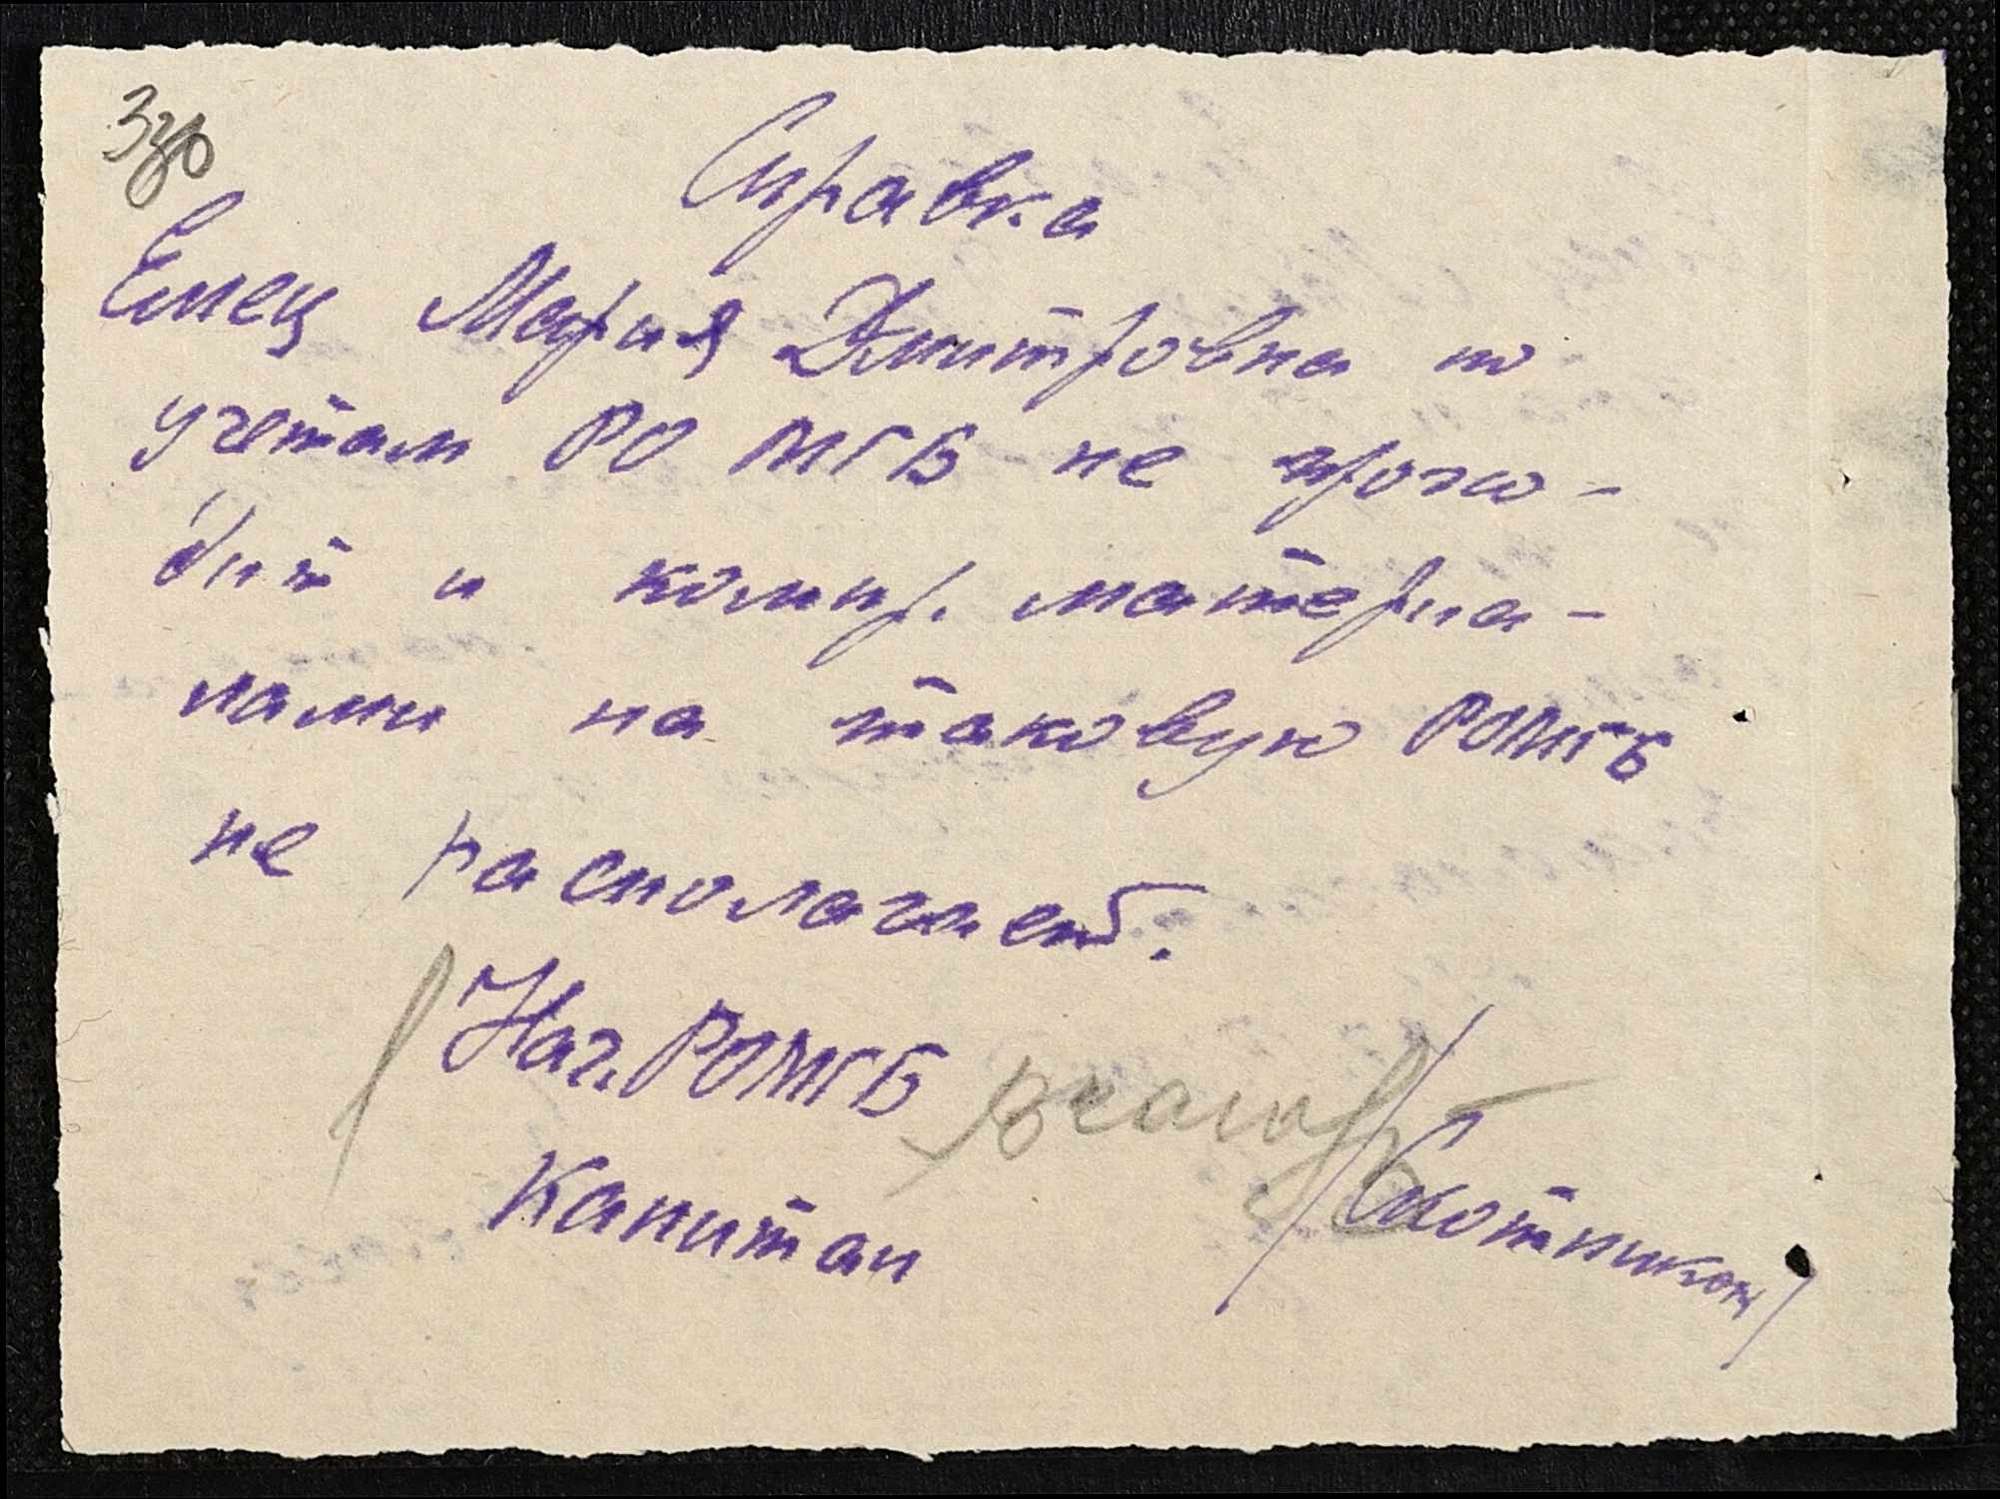 Справка
Емец Мария Дмитровна по
учетам РО МГБ не прохо-
дит и компр. материа-
лами на таковую РОМГБ
не располагает.
Нач. РОМГБ
Капитан /Скотников/